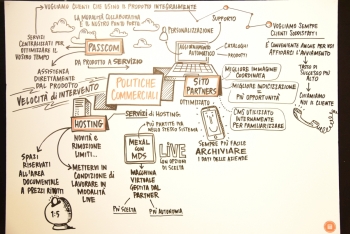 VOGLIAMO CLIENTI CHE USINO IL PRODOTTO INTEGRALMENTE
LA MODALITÀ COLLABORAZIONE
È IL NOSTRO PUNTO FORTE
SERVIZI
CENTRALIZZATI PER
OTTIMIZZARE IL
VOSTRO TEMPO
PASSCOM
ASSISTENZA
DIRETTAMENTE
DAL PRODOTTO
VELOCITÀ DI INTERVENTO
DA PRODOTTO A SERVIZIO
POLITICHE
COMMERCIALI
SUPPORTO
PERSONALIZZAZIONE
AGGIORNAMENTO
AUTOMATICO
CATALOGHI
PRODOTTI
SITO
PARTNERS
OTTIMIZZATO
VOGLIAMO SEMPRE
CLIENTI SODDISFATTI!
È CONVENIENTE ANCHE PER VOI
AFFIDARCI L'AVVIAMENTO
TASSO DI
SUCCESSO PIÙ
ALTO
CHIAMIAMO
NOI IL CLIENTE
MIGLIORE IMMAGINE
COORDINATA
MIGLIORE INDICIZZAZIONE
= PIÙ OPPORTUNITÀ
UTILIZZATELO
INTERNAMENTE PER
FAMILIARIZZARE
HOSTING
SERVIZI DI HOSTING
PIÙ PARTITE IVA
NELLO STESSO SISTEMA
NOVITÀ E
RIMOZIONE
LIMITI...
SPAZI
RISERVATI
ALL'AREA
DOCUMENTALE
A PREZZI RIDOTTI
1:5
METTERVI IN
CONDIZIONE DI
LAVORARE IN
MODALITÀ
LIVE
MEXAL
MDS
MACCHINA
VIRTUALE
GESTITA DAL
PARTNER
PIÙ SCELTA
PIÙ AUTONOMIA
LIVE
CON OPZIONI
DI SCELTA
SEMPRE PIÙ FACILE
ARCHIVIARE
I DATI DELLE AZIENDE